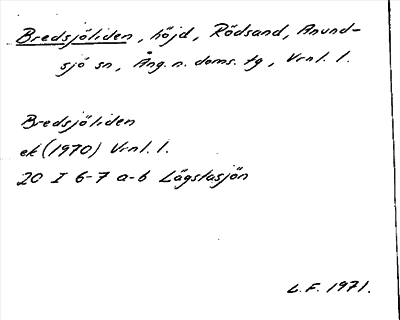 Bredsjöliden, höjd, Rödsand, Anund-
sjö sn, Ång. n. doms. tg, Vrnl. l.
Bredsjöliden
ek (1970) Vrnl. l.
20 I 6-7 a-b Lägstasjön
L.F. 1971.